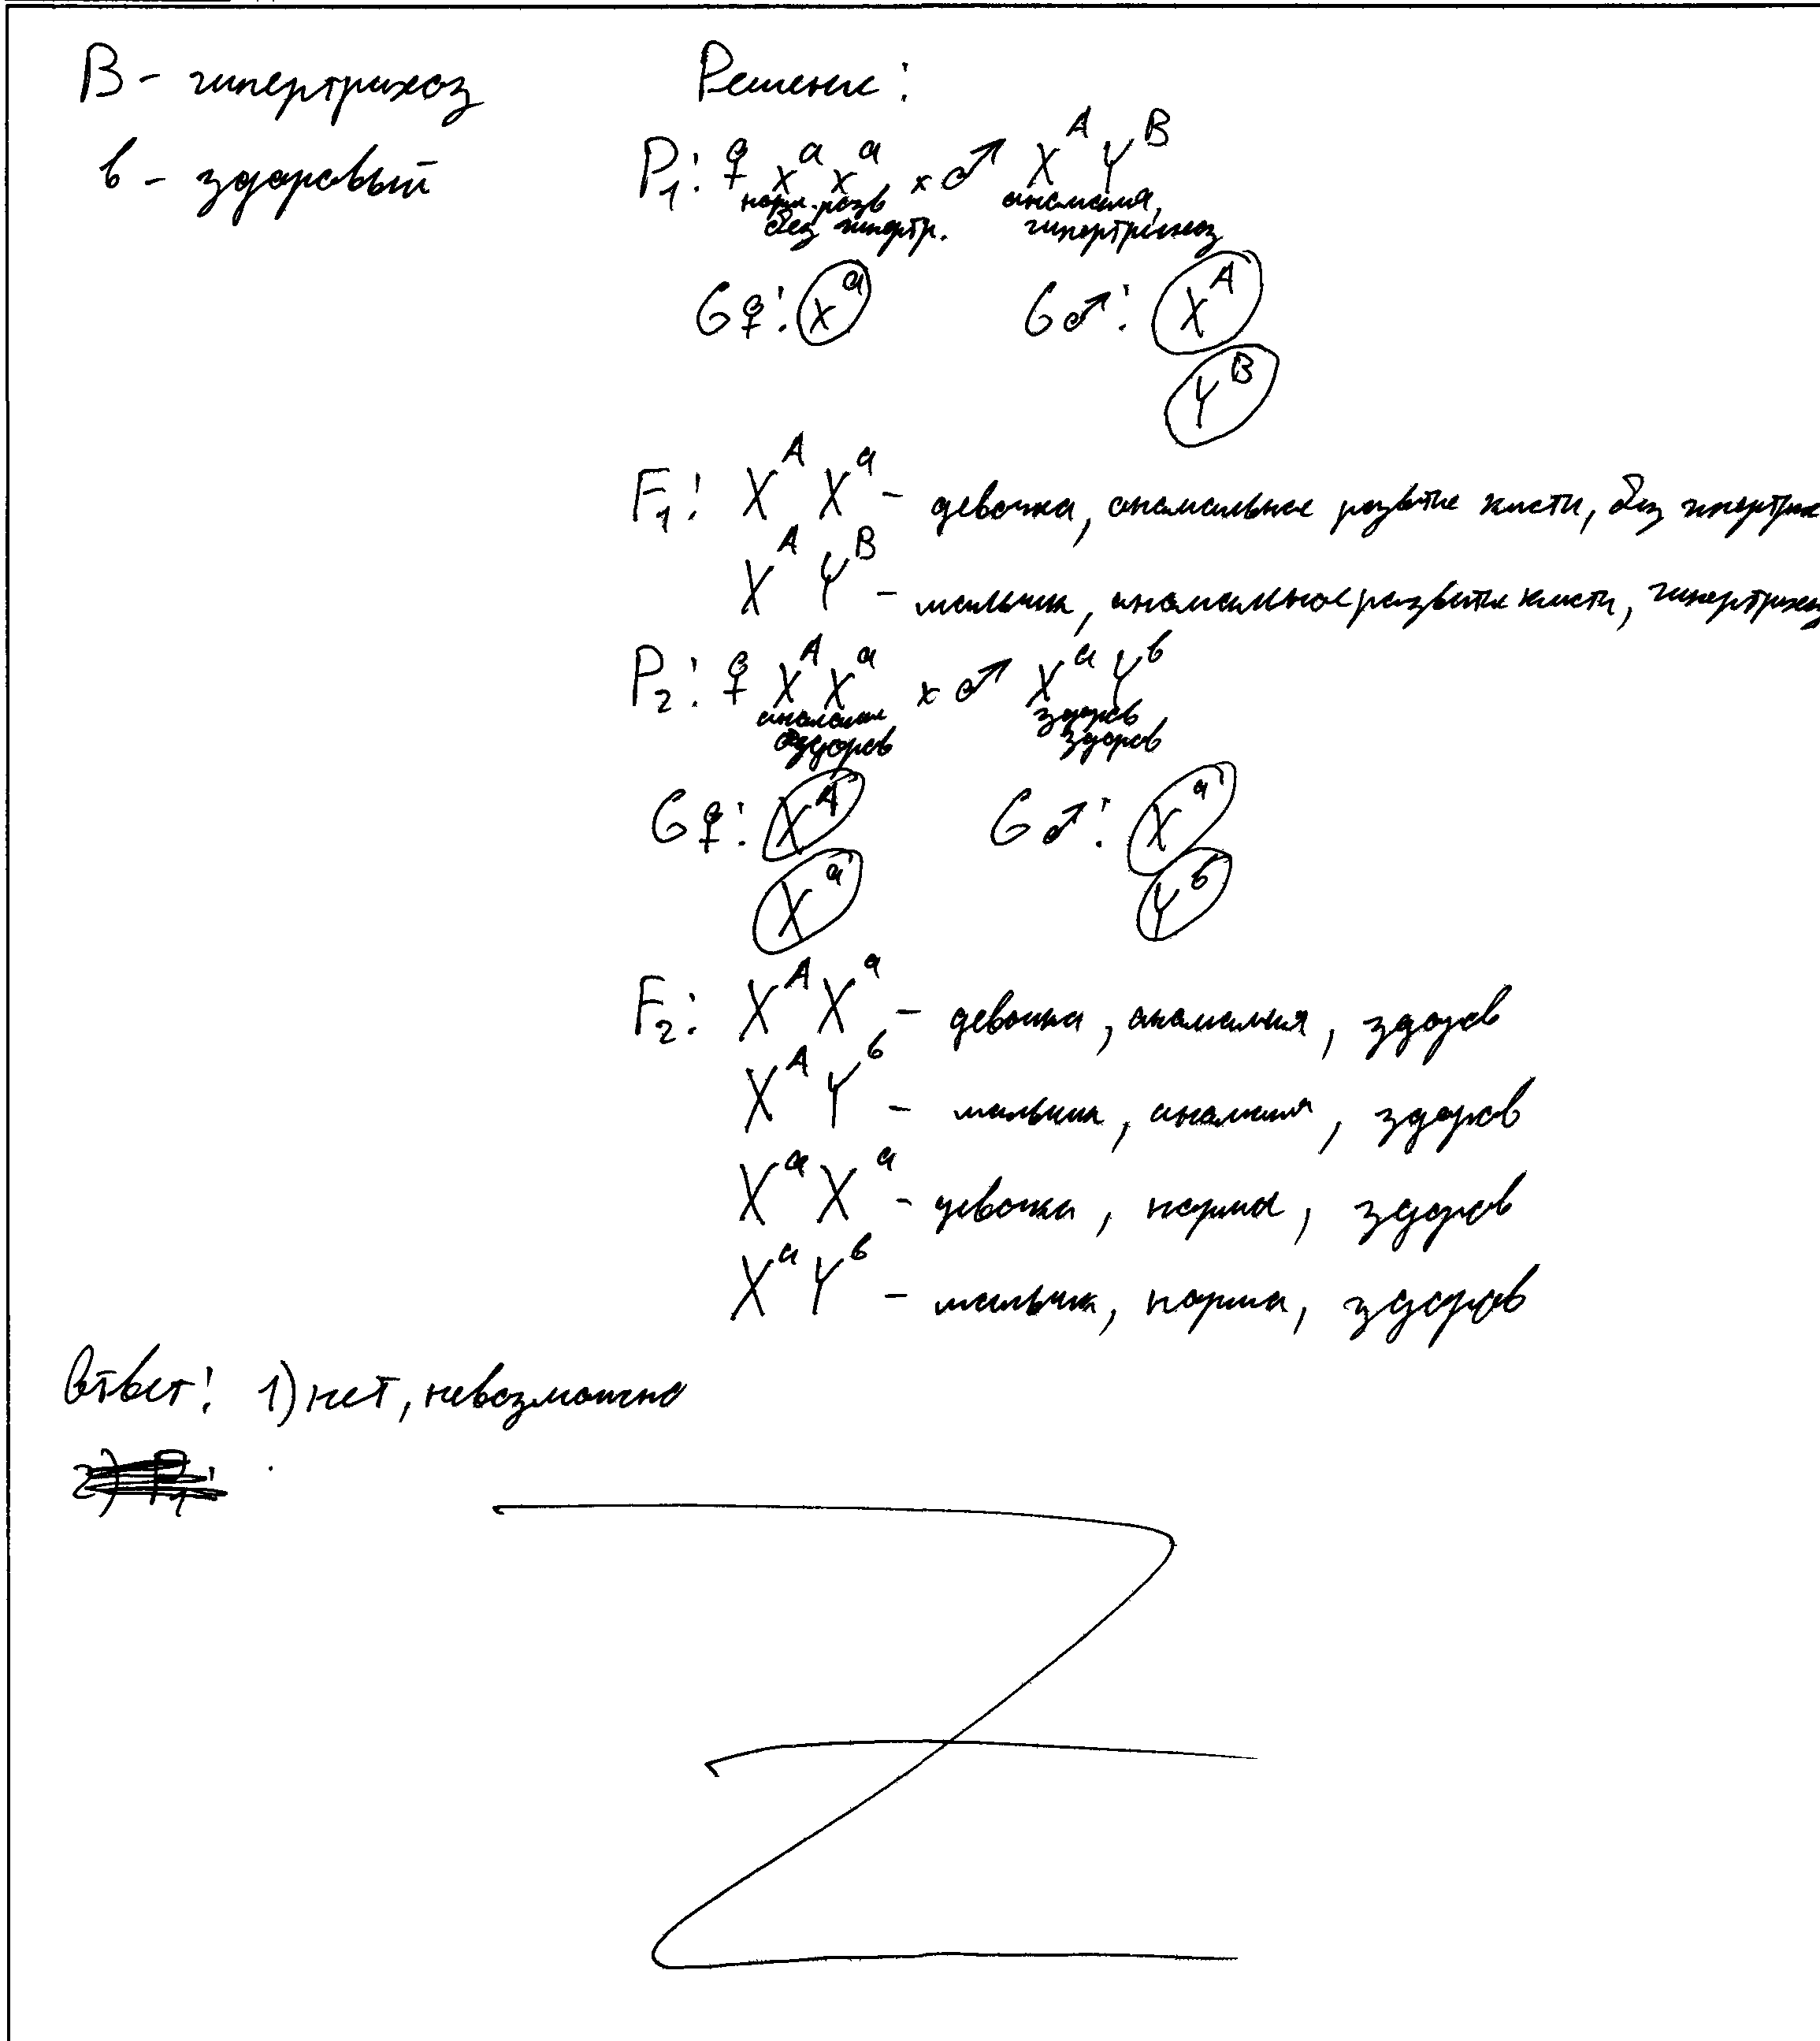 B - гипертрихоз
в - здоровый
Решение:
P₁: ♀ XᵃXᵃ × ♂ XᴬYᴮ
норм. разв аномалия,
без гипертр. гипертрихоз
G♀: Xᵃ G♂: Xᴬ
Yᴮ
F₁: XᴬXᵃ - девочка, аномальное развтие кисти, без гипертрих
XᴬYᴮ - мальчик, аномальное развитие кисти, гипертрихоз
P₂: ♀ XᴬXᵃ × ♂ XᵃYᵇ
здоров
здоров здоров
G♀: Xᴬ G♂: Xᵃ
Xᵃ Yᵇ
F₂: XᴬXᵃ - девочка, аномалия, здоров
XᴬYᵇ - мальчик, аномалия, здоров
XᵃXᵃ - девочка, норма, здоров
XᵃYᵇ - мальчик, норма, здоров
Ответ: 1) нет, невозможно